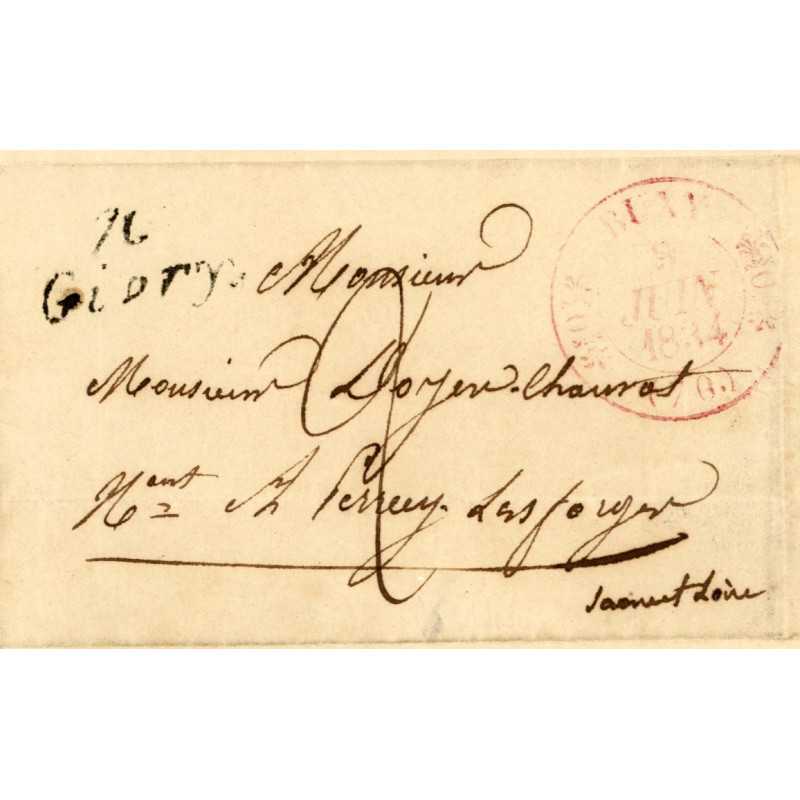 Givry
Monsieur
BUXY
9
JUIN
1834
(70)
2
Monsieur Doyen-Chauvot
N.ant A Perrecy-Les forges
Saone et Loire